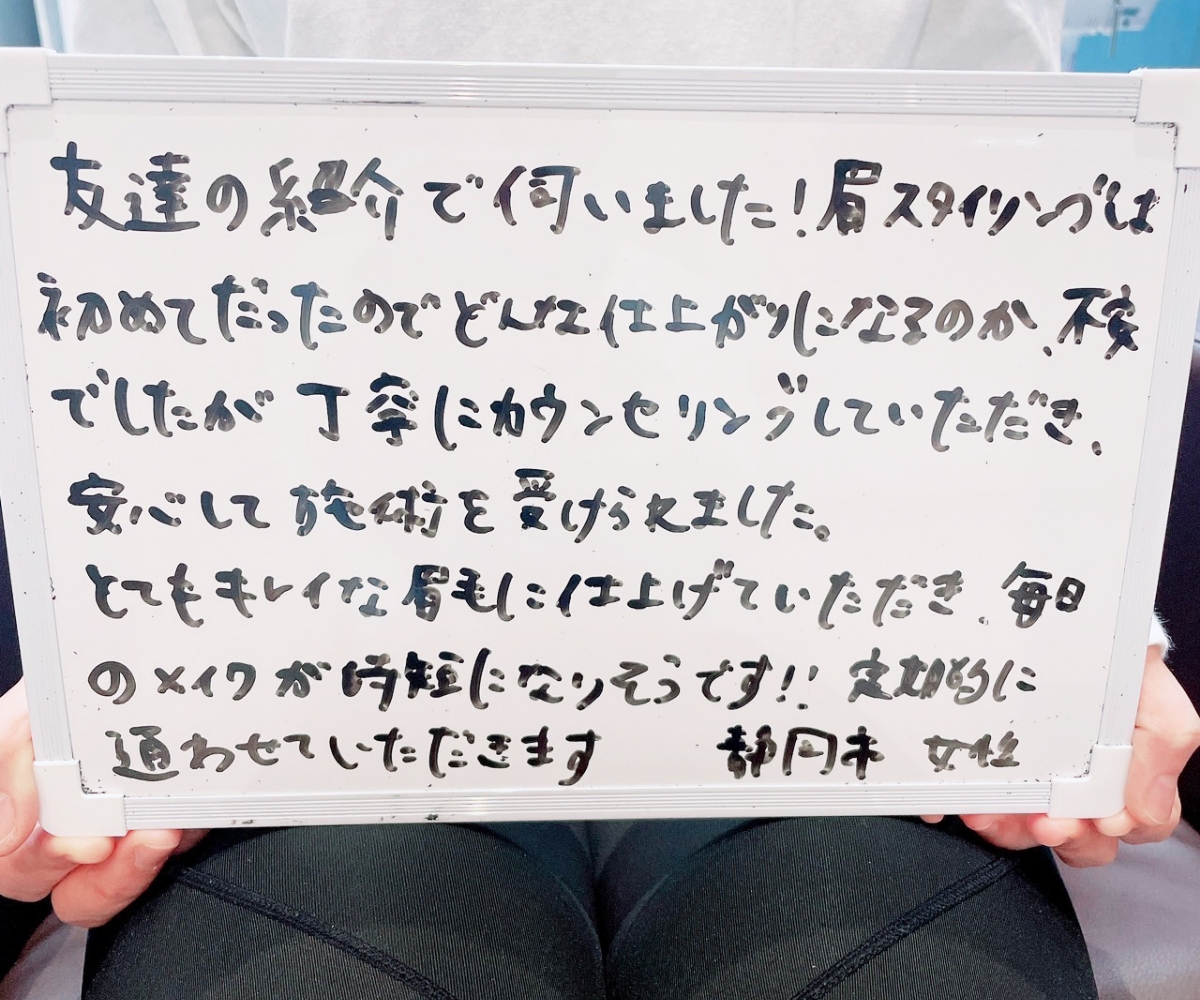 友達の紹介で伺いました!眉スタイリングは
初めてだったのでどんな仕上がりになるのか、不安
でしたが丁寧にカウンセリングしていただき、
安心して施術を受けられました。
とてもキレイな眉毛に仕上げていただき、毎日
のメイクが時短になりそうです!!定期的に
通わせていただきます 静岡市 女性